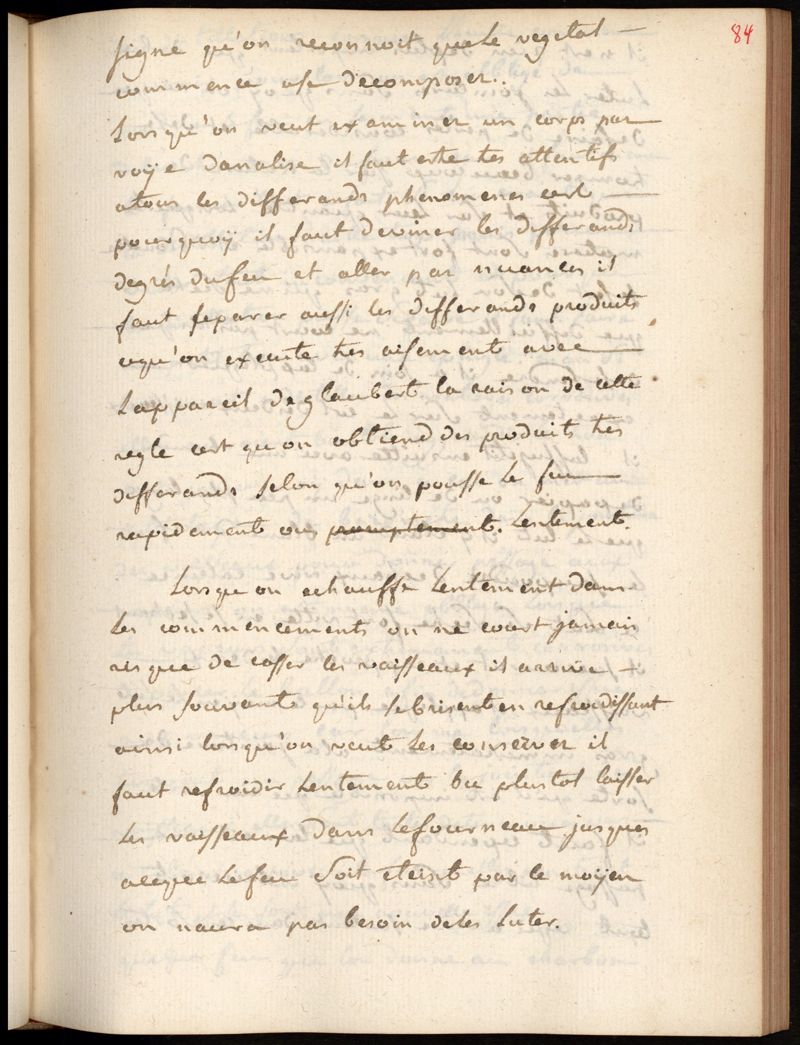 84
signe qu'on reconnoit que le vegetal
commence ase decomposer.
Lorsqu'on veut examiner un corps par
voÿe danalise il faut estre tres attentifs
atous les differands phenomenes cest
pourquoÿ il faut deviner les differands
degrés du feu et aller par nuances il
faut separer aussi les differands produits
cequ'on execute tres aisement avec
Lappareil deglaubert la raison de cette
regle cest qu'on obtiend des produits tres
differands selon qu'on pousse le feu
rapidement ou promptement. Lentement.
Lorsqu on echauffe Lentement dans
Les commencements on ne court jamais
risque de casser les vaisseaux il arrive
plus souvant qu'ils se brisent en refroidissant
ainsi lorsqu'on veut Les conserver il
faut refroidir Lentement ou plustot laisser
Les vaisseaux dans Lefourneau jusques
aceque Lefeu soit eteint par le moÿen
on naura pas besoin deles Luter.